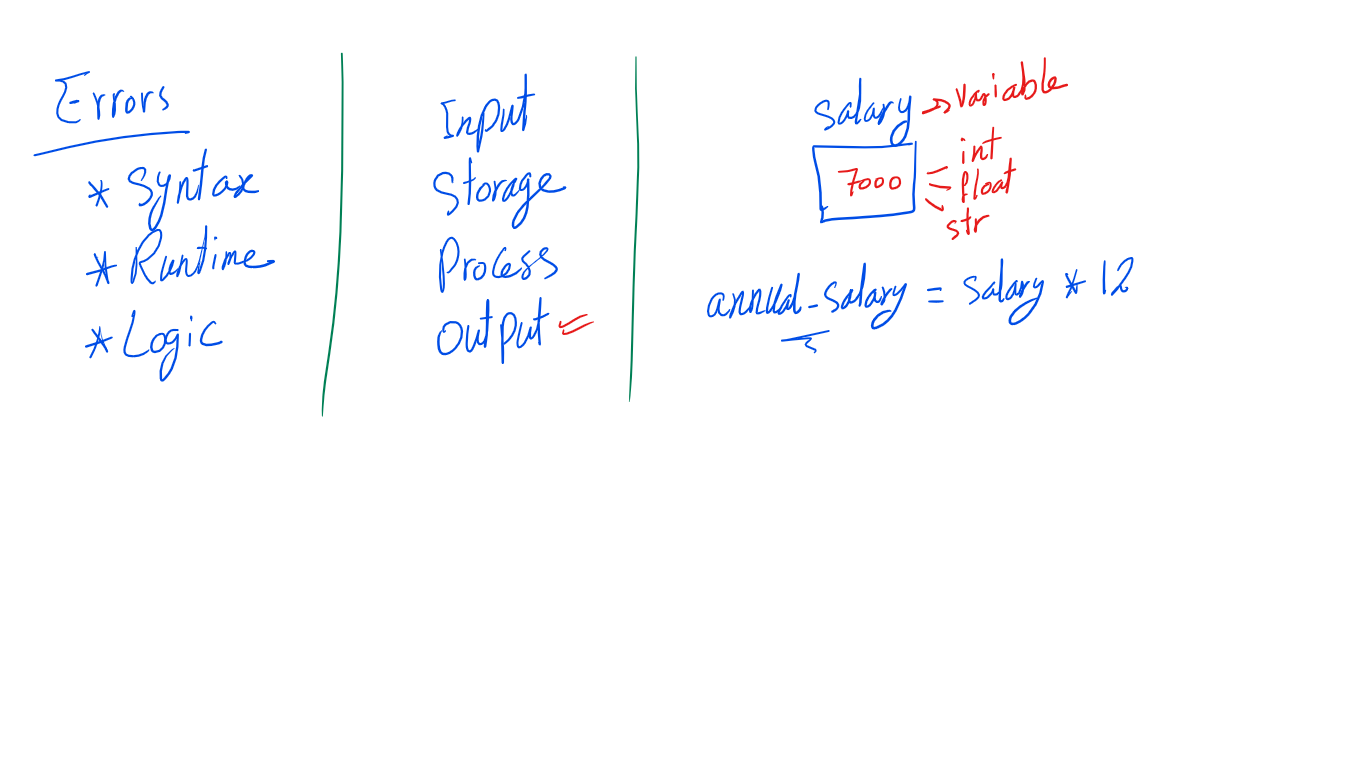 Errors
* Syntax
* Runtime
* Logic
Input
Storage
Process
Output
salary → Variable
7000
int
float
str
annual_salary = salary * 12